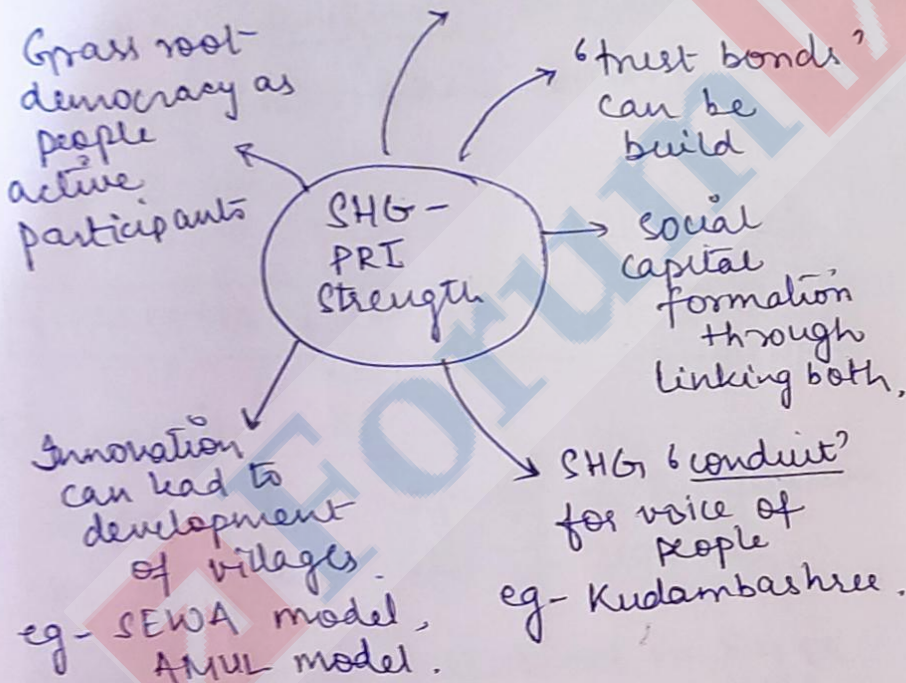 Grass root
democracy as
people
active
participants
'trust bonds'
can be
build
SHG -
PRI
Strength
social
capital
formation
through
linking both,
Innovation
can lead to
development
of villages.
eg- SEWA model,
AMUL model.
SHG 'conduit'
for voice of
people
eg- Kudambashree.
Forum